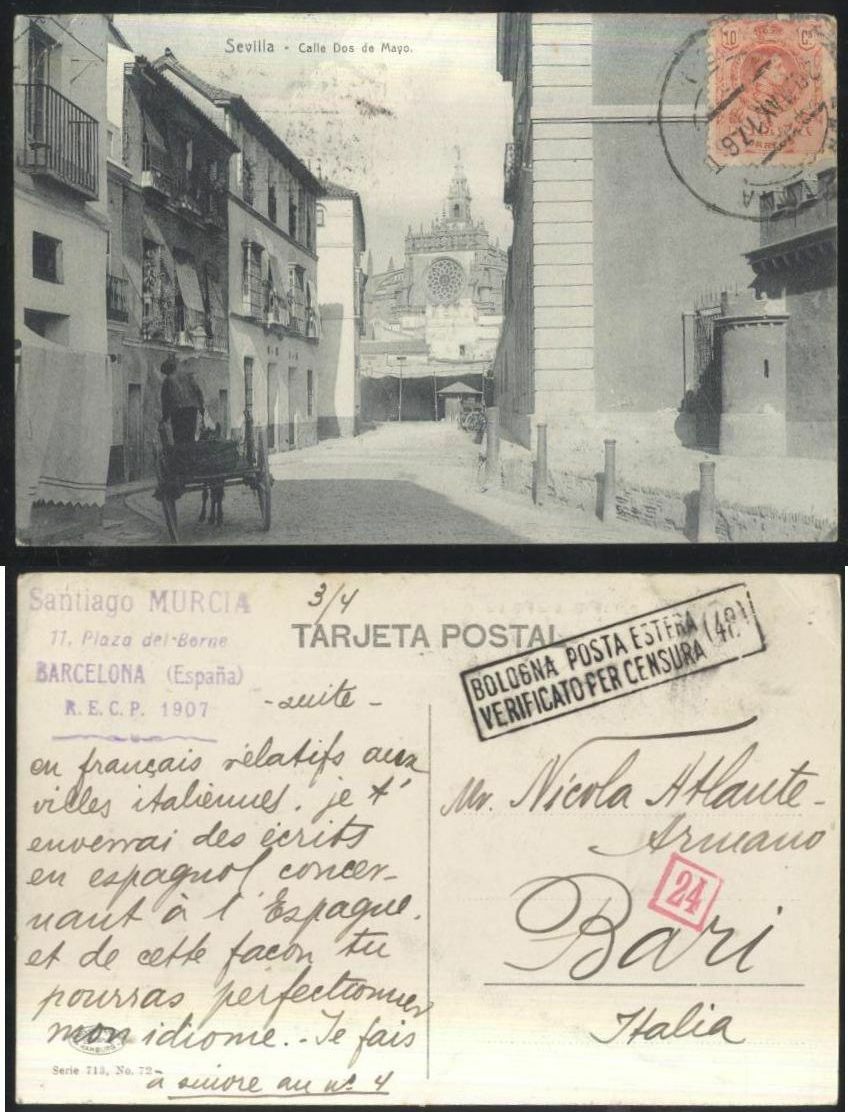 Sevilla - Calle Dos de Mayo.
10 Cs
Santiago MURCIA
11, Plaza del Borne
BARCELONA (España)
R. E. C. P. 1907
3/4
TARJETA POSTAL
BOLOGNA POSTA ESTERA (48)
VERIFICATO PER CENSURA
- suite -
en français rélatifs aux
villes italiennes. je t'
enverrai des écrits
en espagnol concer-
nant à l'Espagne.
et de cette facon tu
pourras perfectionner
mon idiome. - Je fais
à suivre au nº 4
Mr. Nicola Atlante-
Armano
24
Bari
Italia
HAMBURG
Serie 713, No. 72